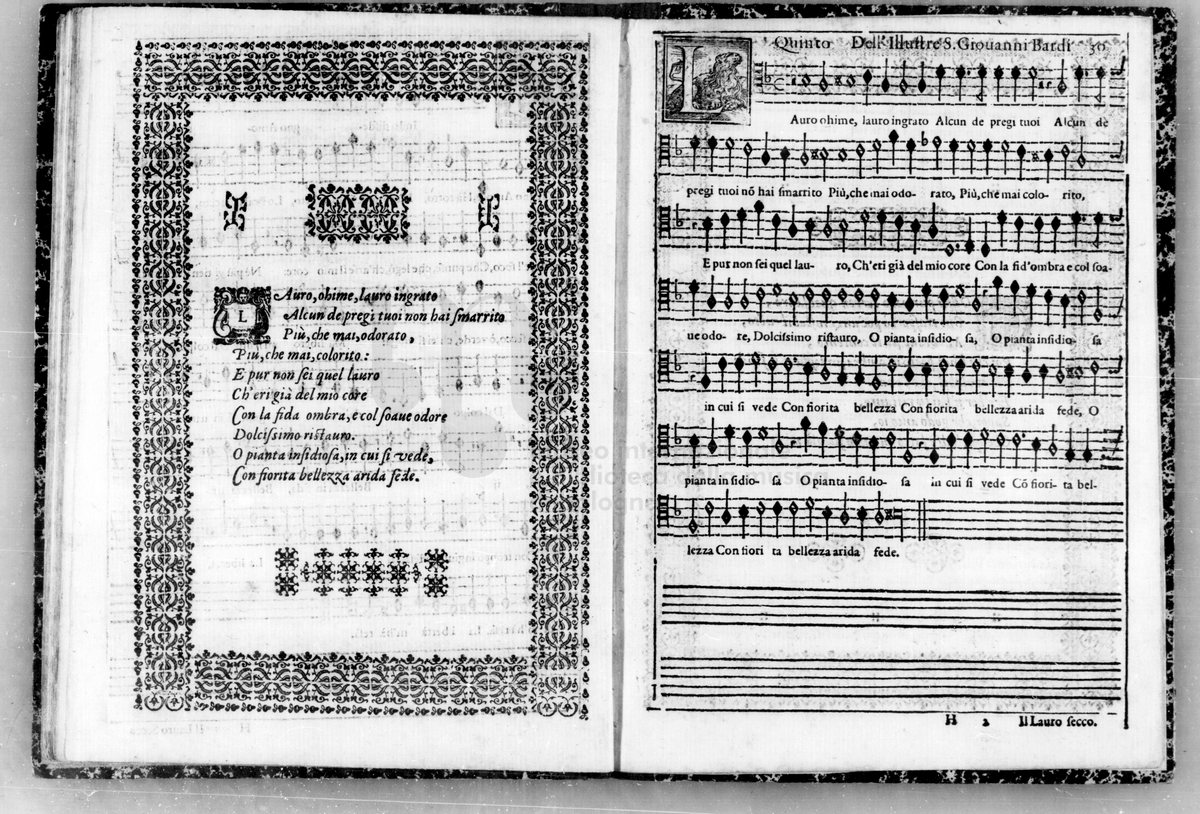 LAuro, ohime, lauro ingrato
Alcun de pregi tuoi non hai smarrito
Più, che mai, odorato,
Più, che mai, colorito:
E pur non sei quel lauro
Ch'eri già del mio core
Con la fida ombra, e col soaue odore
Dolcissimo ristauro.
O pianta insidiosa, in cui si vede,
Con fiorita bellezza arida fede.
Quinto Dell'Illustre S. Giouanni Bardi 30
LAuro ohime, lauro ingrato Alcun de pregi tuoi Alcun de
pregi tuoi nõ hai smarrito Più, che mai odo- rato, Più, che mai colo- rito,
E pur non sei quel lau- ro, Ch'eri già del mio core Con la fid'ombra e col soa-
ue odo- re, Dolcissimo ristauro, O pianta insidio- sa, O pianta insidio- sa
in cui si vede Con fiorita bellezza Con fiorita bellezza arida fede, O
pianta insidio- sa O pianta insidio- sa in cui si vede Cõ fiori- ta bel-
lezza Con fiori ta bellezza arida fede.
H 2 Il Lauro secco.